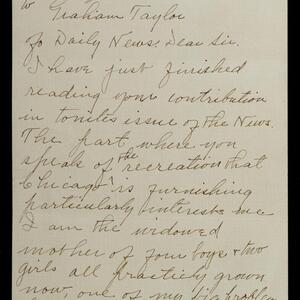 Graham Taylor
℅ Daily News; Dear Sir,
I have just finished
reading your contribution
in tonites issue of the News.
The part where you
speak of the recreation that
Chicago is furnishing
particularly interests me
I am the widowed
mother of four boys & two
girls all practicly grown
now, one of my big